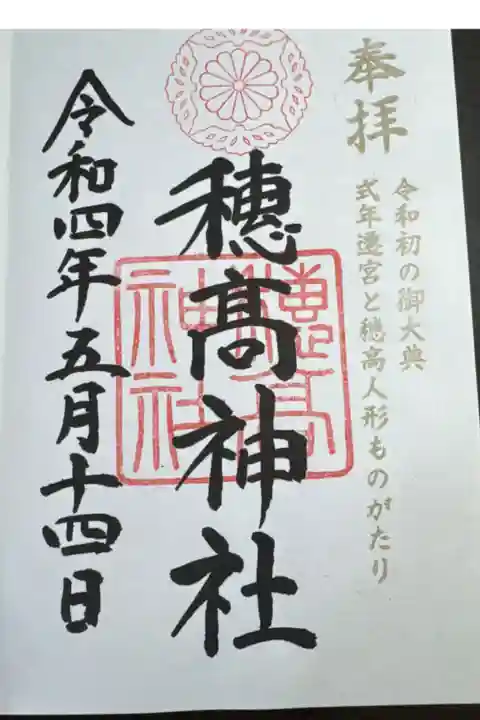 奉拝
令和初の御大典
式年遷宮と穂高人形ものがたり
穗髙神社
穗髙神社
令和四年五月十四日